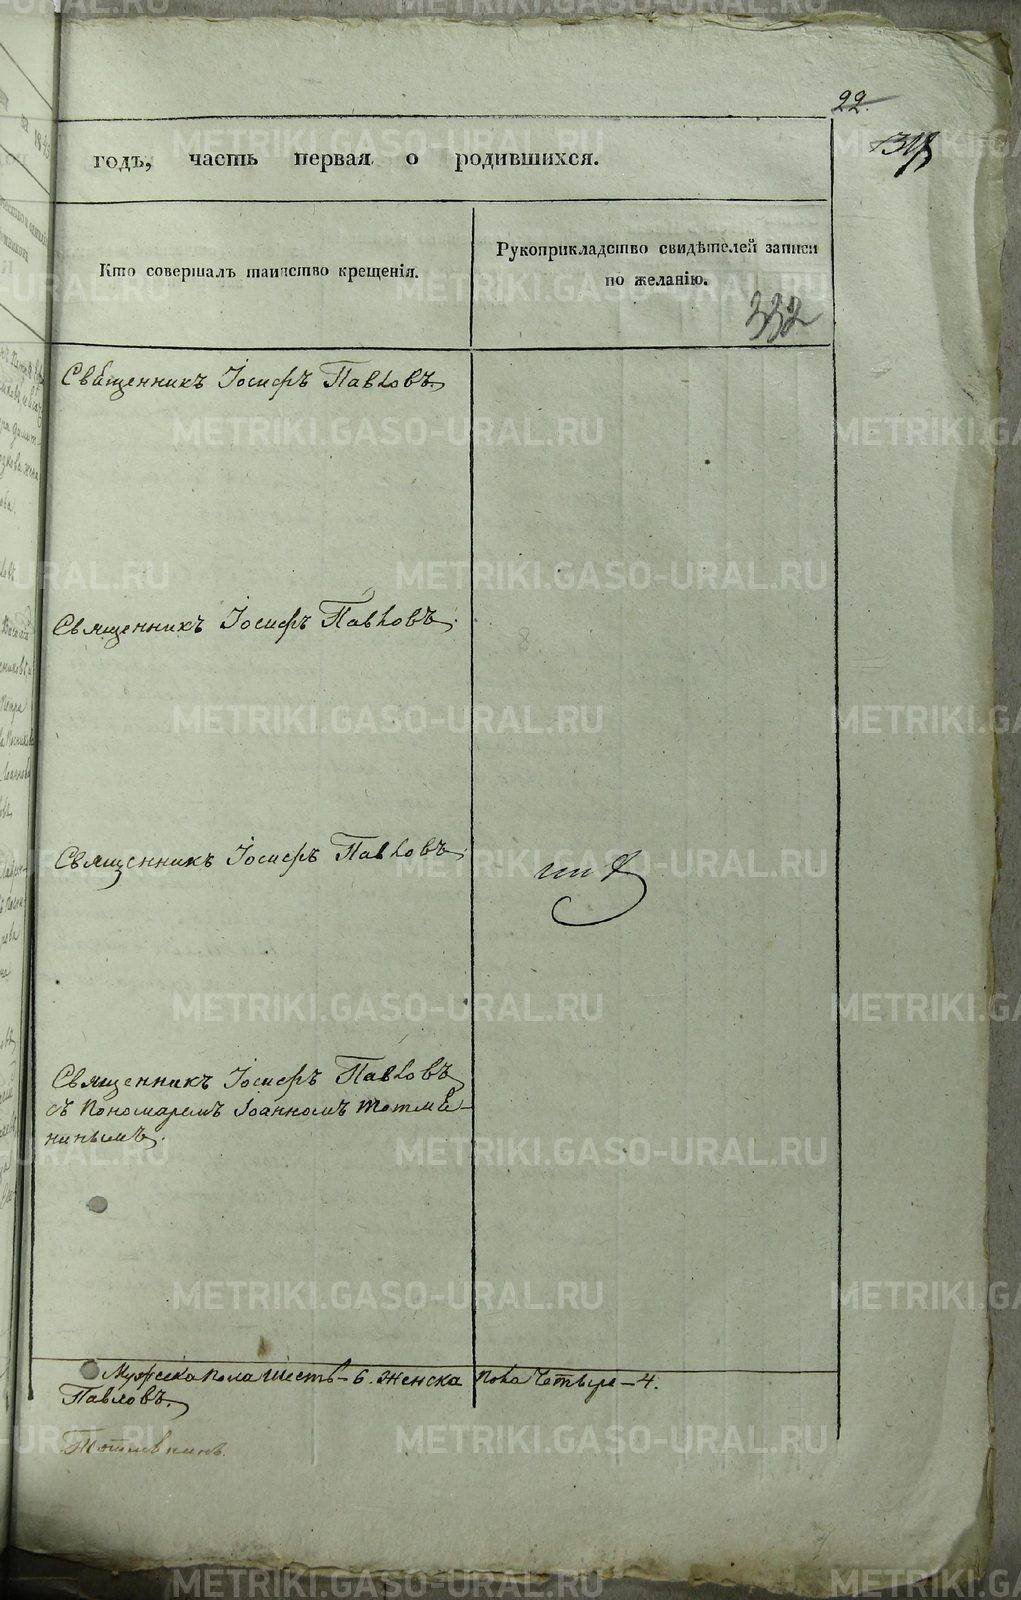 22.
годъ, часть первая о родившихся.
Кто совершалъ таинство крещенія.
Рукоприкладство свидѣтелей записи
по желанію.
332
Священникъ Іосифъ Павловъ.
Священникъ Іосифъ Павловъ.
Священникъ Іосифъ Павловъ.
Священникъ Іосифъ Павловъ
съ Пономаремъ Іоанномъ Тотмѣ-
нинымъ.
Мужеска пола шесть – 6. Женска пола Четыре – 4.
Павловъ.
METRIKI.GASO-URAL.RU